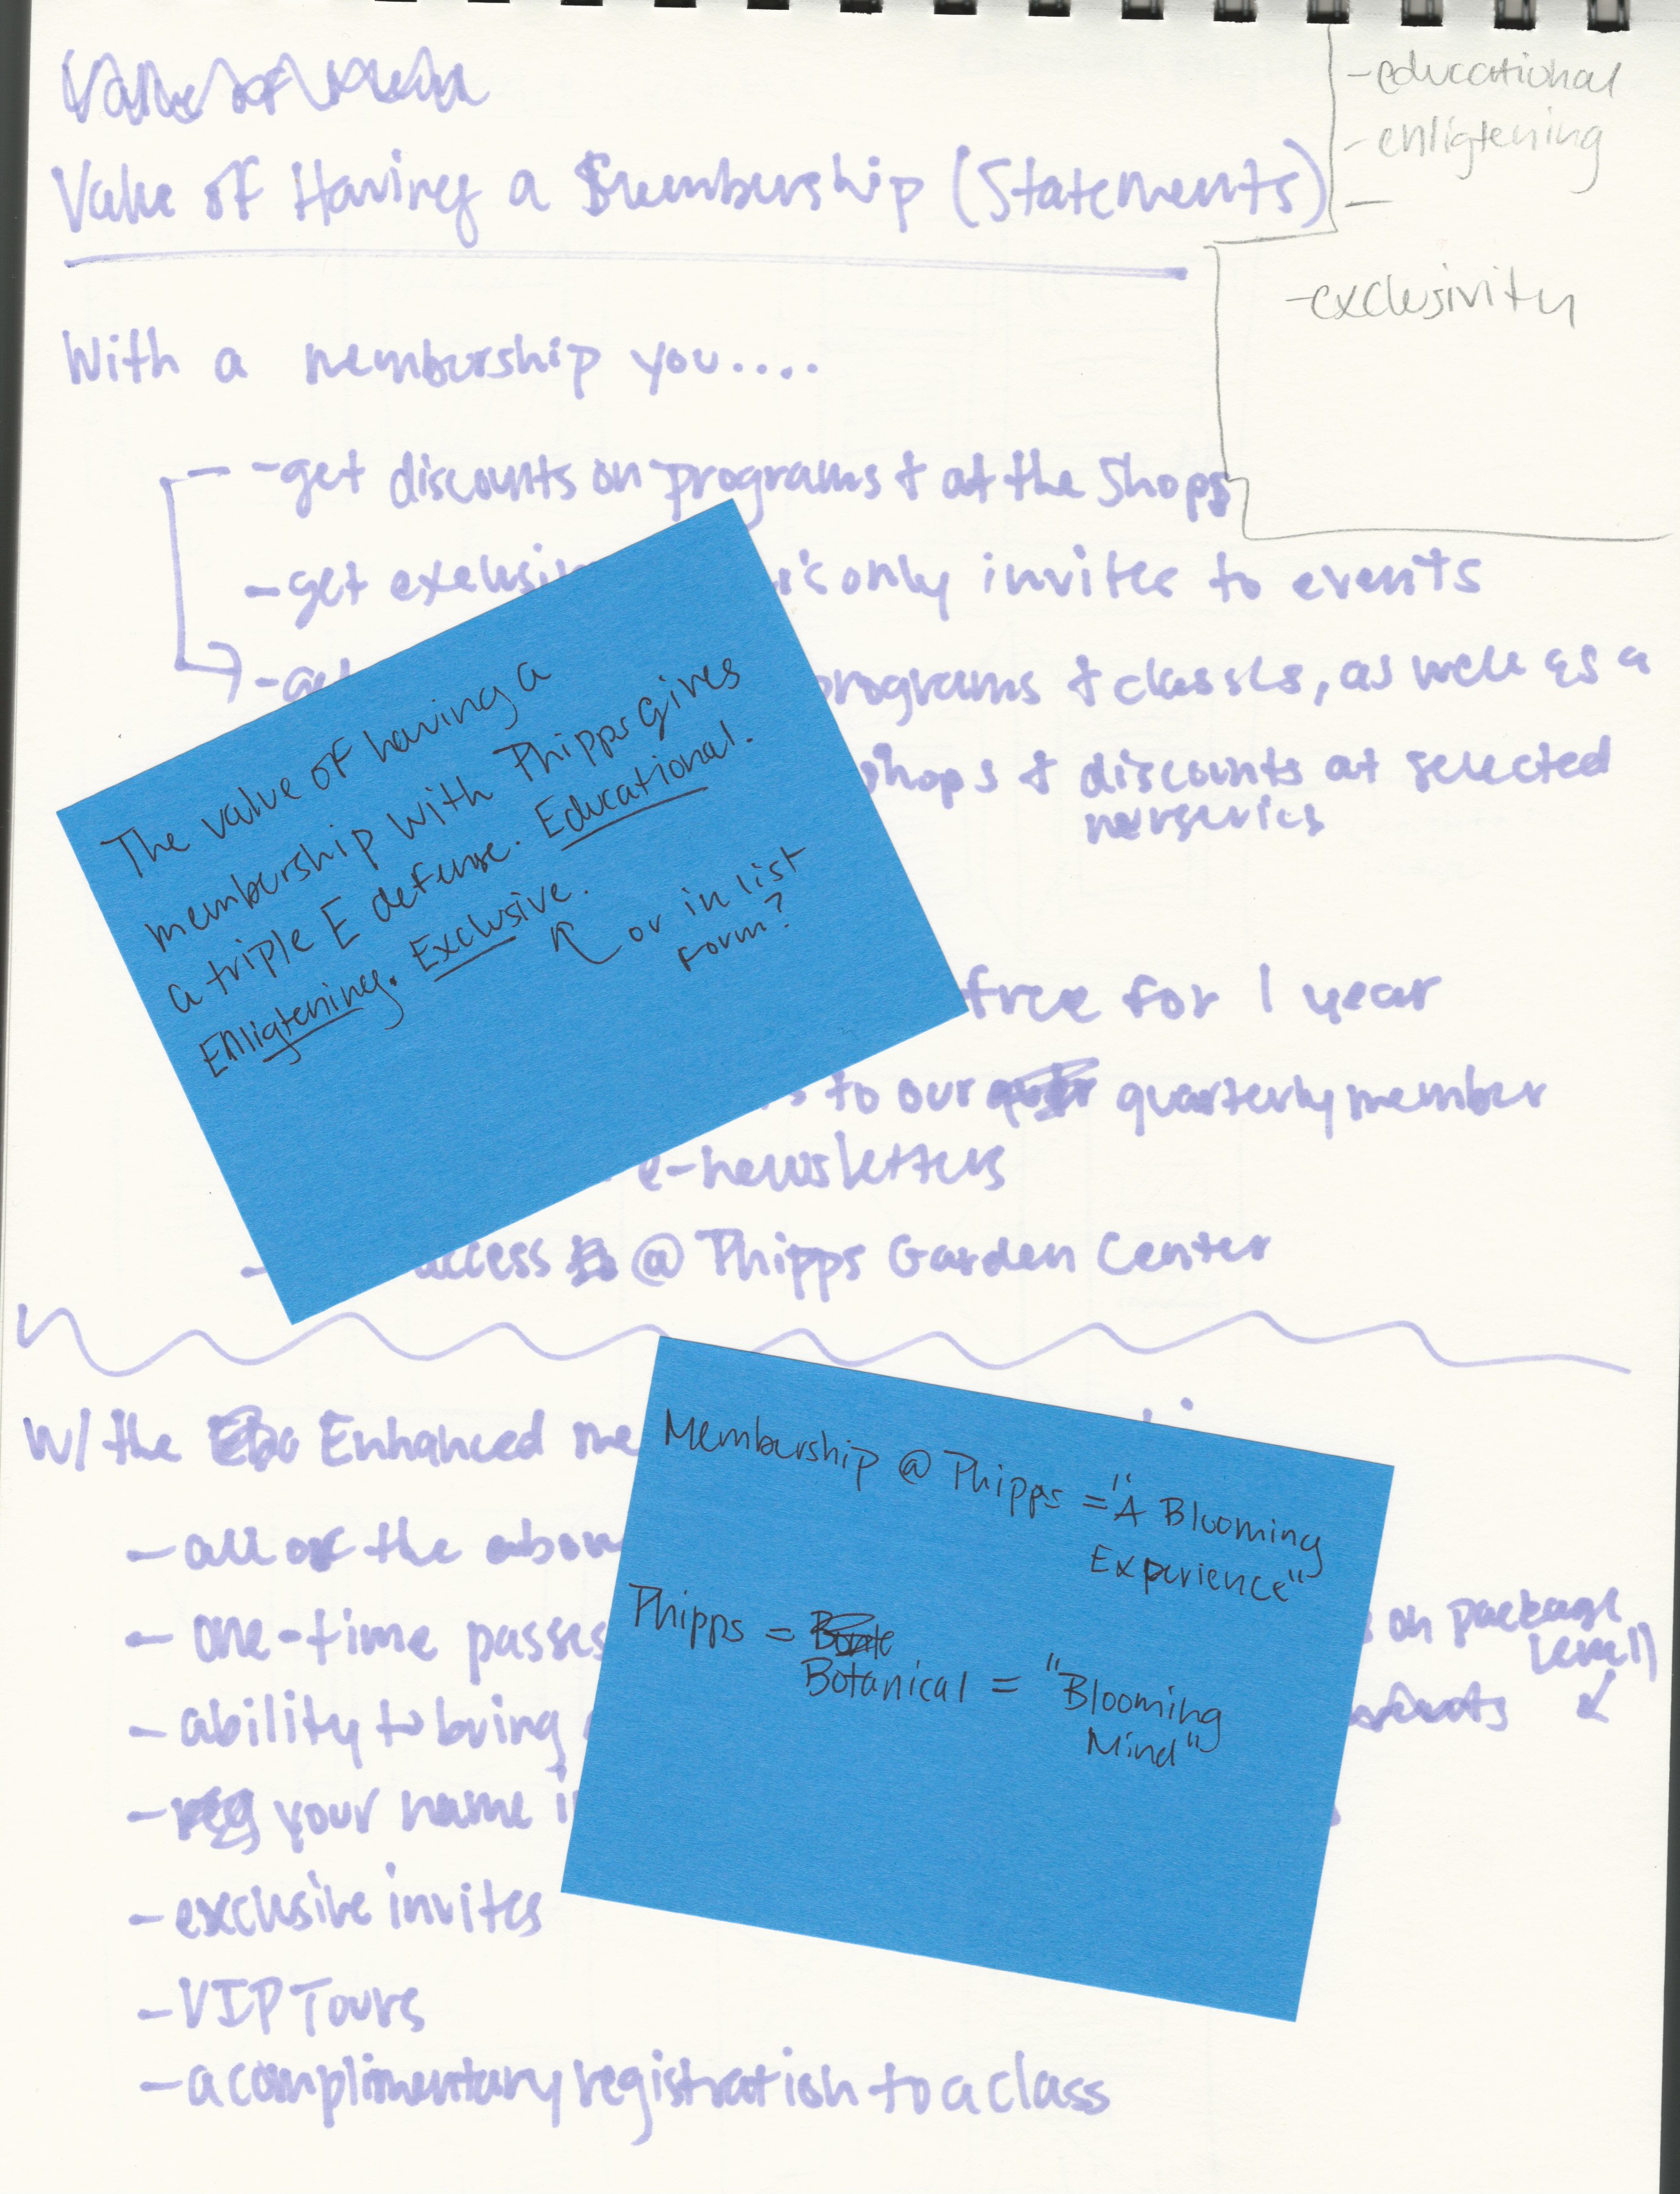 Value of
Value of Having a Membership (Statements)
-educational
-enligtening
-
-exclusivity
With a membership you....
-get discounts on programs & at the Shops
-get 's only invites to events
programs & classes, as well as a
shops & discounts at selected
nurseries
free for 1 year
to our quarterly member
e-newsletters
- access @ Phipps Garden Center
The value of having a
membership with Phipps gives
a triple E defense. Educational.
Enligtening. Exclusive.
or in list
form?
W/ the Enhanced me
- all of the above
- one-time passes on package
level)
- ability to bring
- your name i
- exclusive invites
- VIP Tours
- a complimentary registration to a class
Membership @ Phipps = "A Blooming
Experience"
Phipps =
Botanical = "Blooming
Mind"